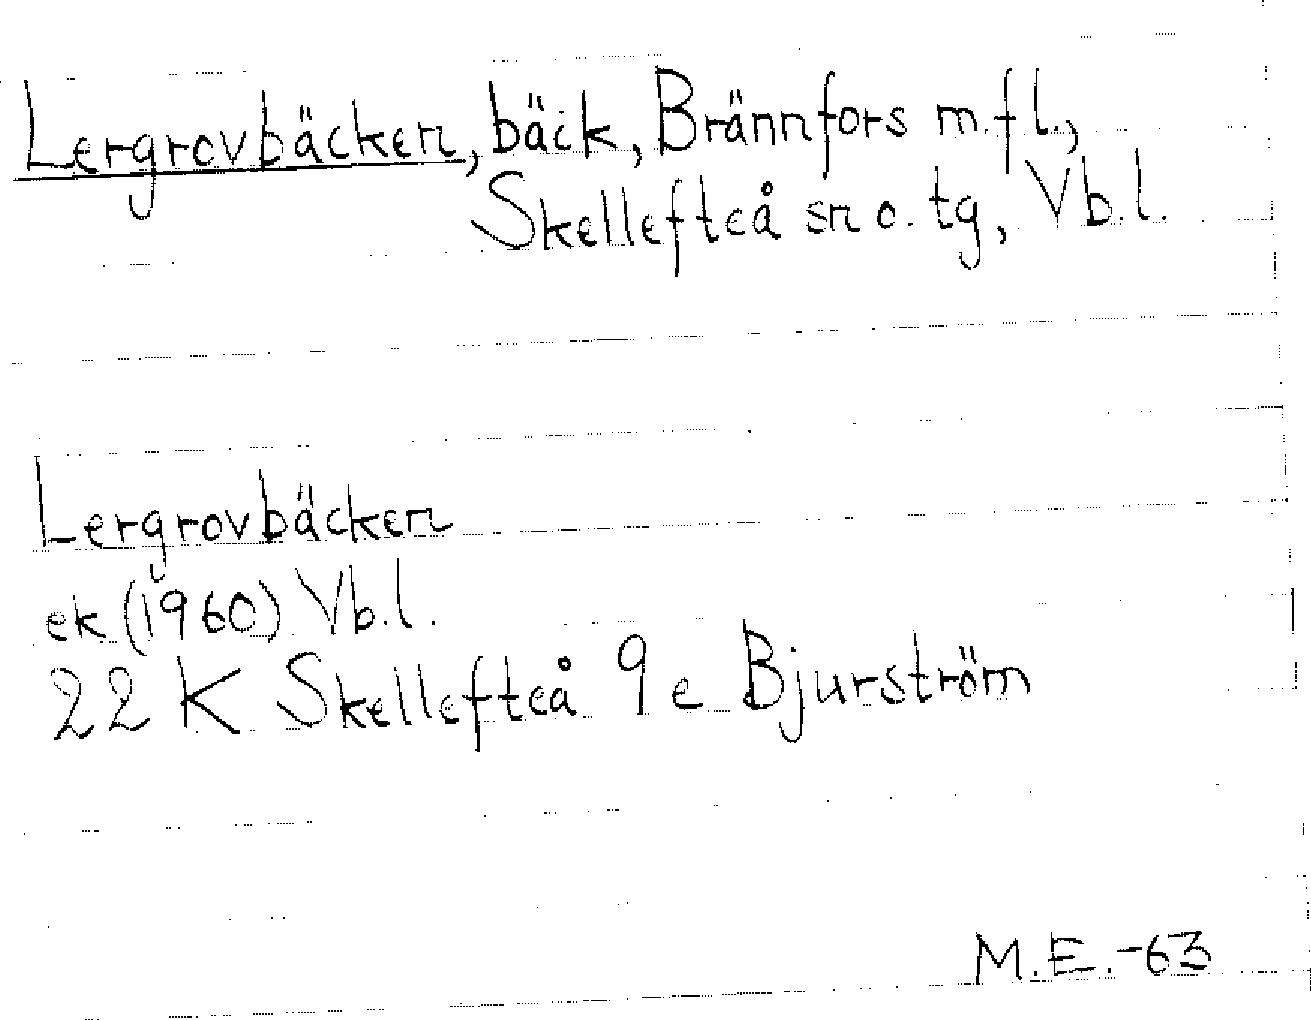 Lergrovbäcken, bäck, Brännfors m.fl.,
Skellefteå sn o. tg, Vb.l.
Lergrovbäcken
ek (1960) Vb.l.
22 K Skellefteå 9 e Bjurström
M.E.-63